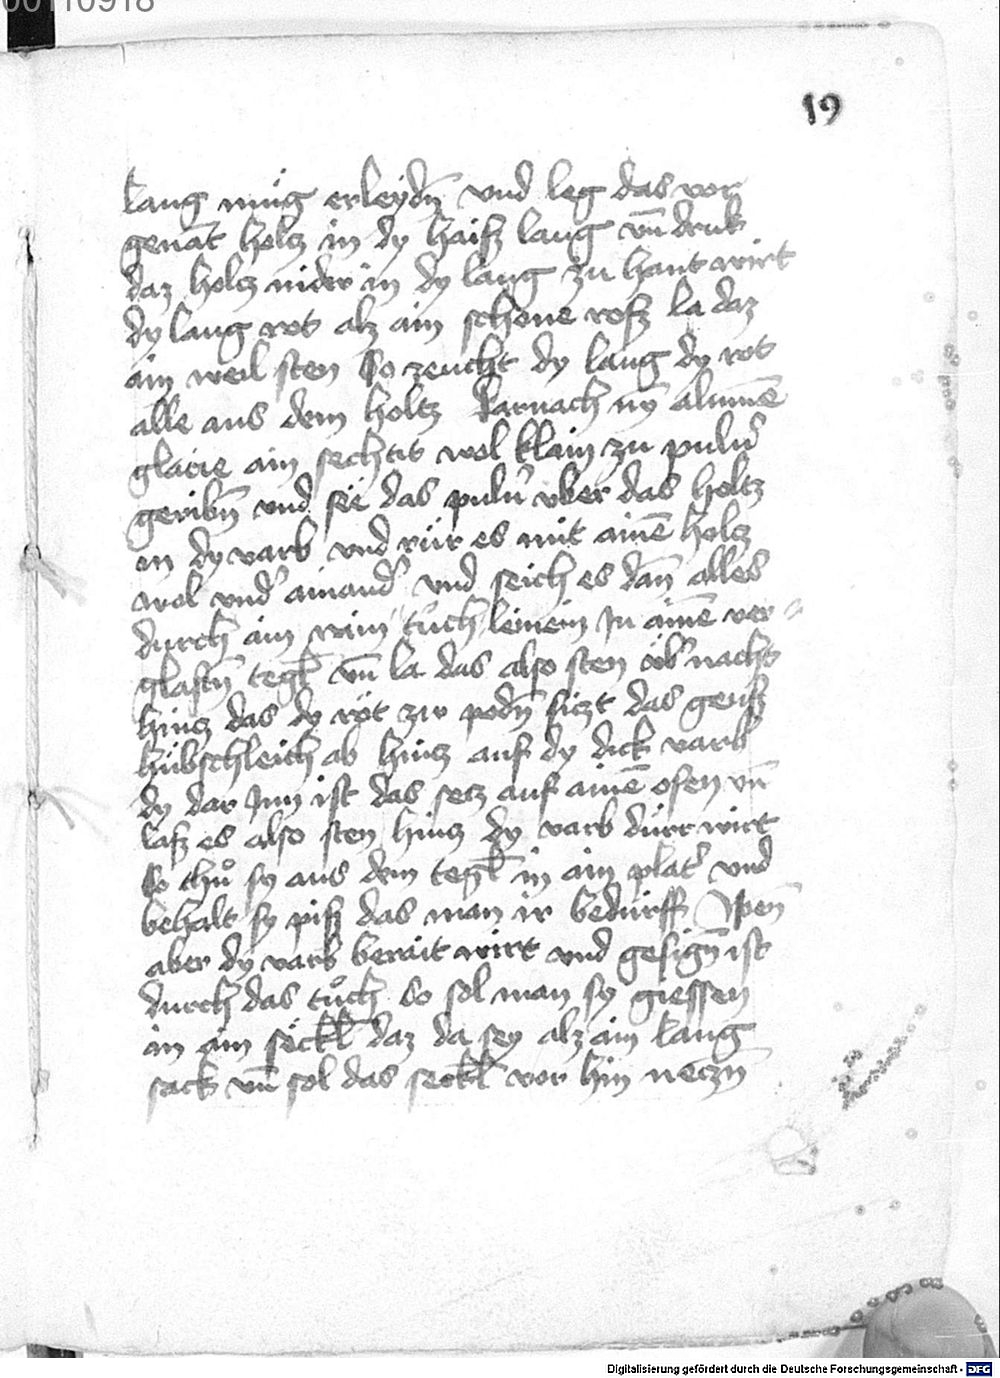 00110918
19
lang müg erleydn̄ vnd leg das vor
genāt holtz in dy haiß laug vn̄ druk
daz holtz nider in dy laug zu hant wirt
dy laug rot alz ain schone roß la daz
ain weil sten So zeucht dy laug dy rot
alle aus dem holtz Darnach nȳ alumē
glacie ain sechtit wol klain zu puluꝰ
geribn̄ vnd see das puluꝰ vber das holtz
in dy varb vnd rür es mit ainē holtz
wol vndꝰ ainandꝰ vnd seich es dan̄ alles
durch ain rain tuͦch leinein In ainē ver
glastn̄ tegl̄ vn̄ la das also sten vbꝰ nacht
hintz das dy röt zw podn̄ siczt das geuß
hübschleich ab hintz auf dy dick varb
dy dar Inn ist das secz auf ainē ofen vn̄
laß es also sten hintz dy varb dürr wirt
So thuͦ sy aus dem tegl̄ in ain platꝰ vnd
behalt sy piß das man ir bedürff Wen̄
aber dy varb berait wirt vnd gesign̄ ist
durch das tuͦch So sol man sy giessen
in ain seckl̄ daz da sey alz ain laug
sack vn̄ sol das seckl̄ vor hin neczn̄
Digitalisierung gefördert durch die Deutsche Forschungsgemeinschaft - DFG